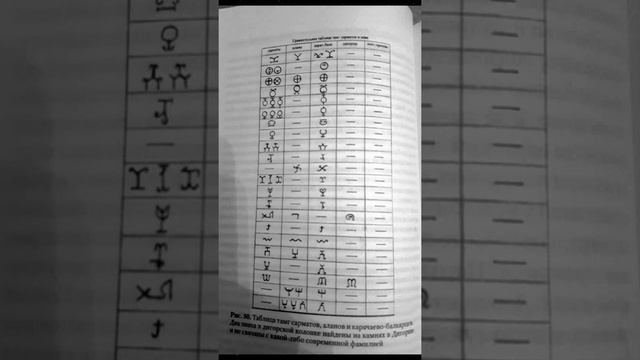 Сравнительная таблица тамг сарматов и алан
сарматы аланы карач.-балк. дигорцы
Рис. 50. Таблица тамг сарматов, аланов и карачаево-балкарцев.
Два знака в дигорской колонке найдены на камнях в Дигории
и не связаны с какой-либо современной фамилией